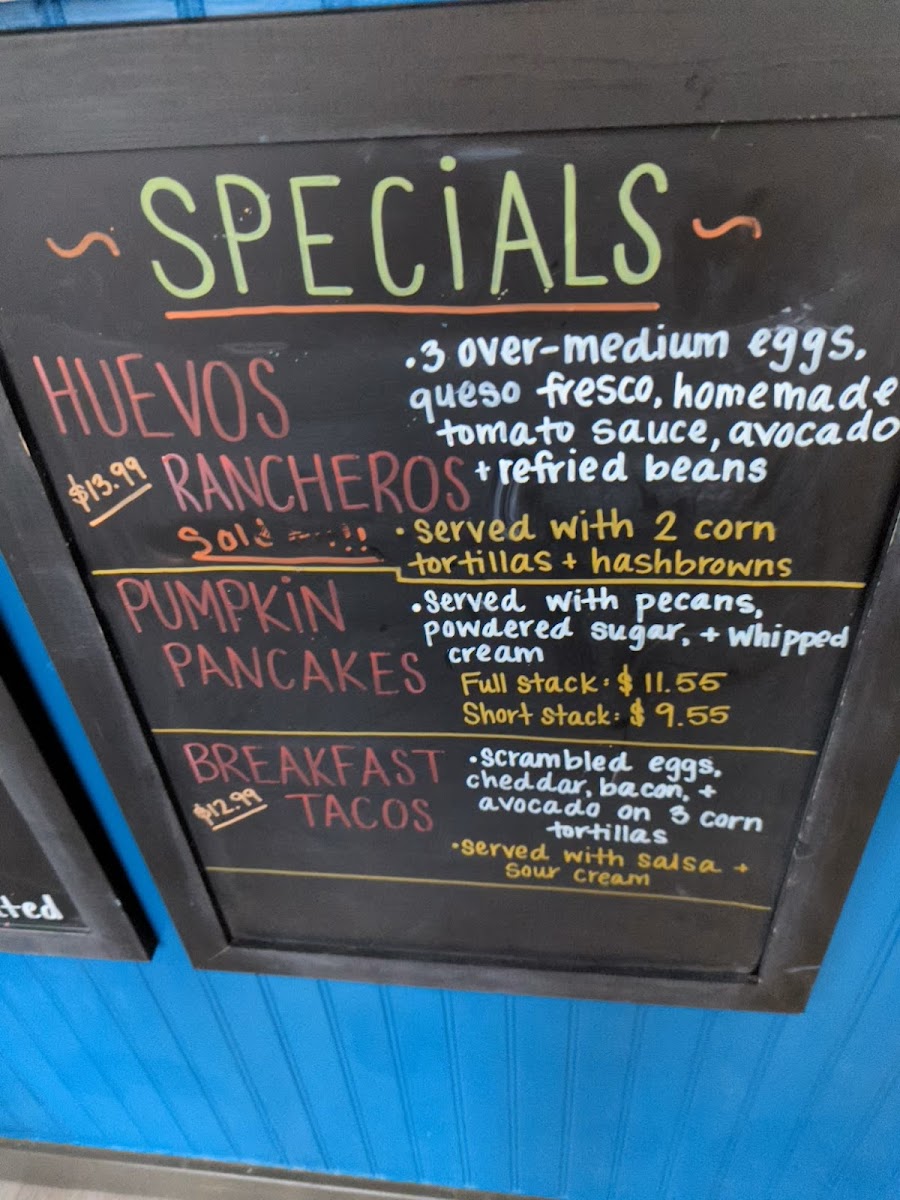 ~ SPECiALS ~
HUEVOS
$13.99 RANCHEROS
Sold !!
.3 over-medium eggs,
queso fresco, homemade
tomato sauce, avocado
+ refried beans
• served with 2 corn
tortillas + hashbrowns
PUMPKiN
PANCAKES
•served with pecans,
powdered sugar, + whipped
cream
Full stack: $11.55
Short stack: $9.55
BREAKFAST
$12.99 TACOS
•scrambled eggs,
cheddar, bacon, +
avocado on 3 corn
tortillas
•served with salsa +
sour cream